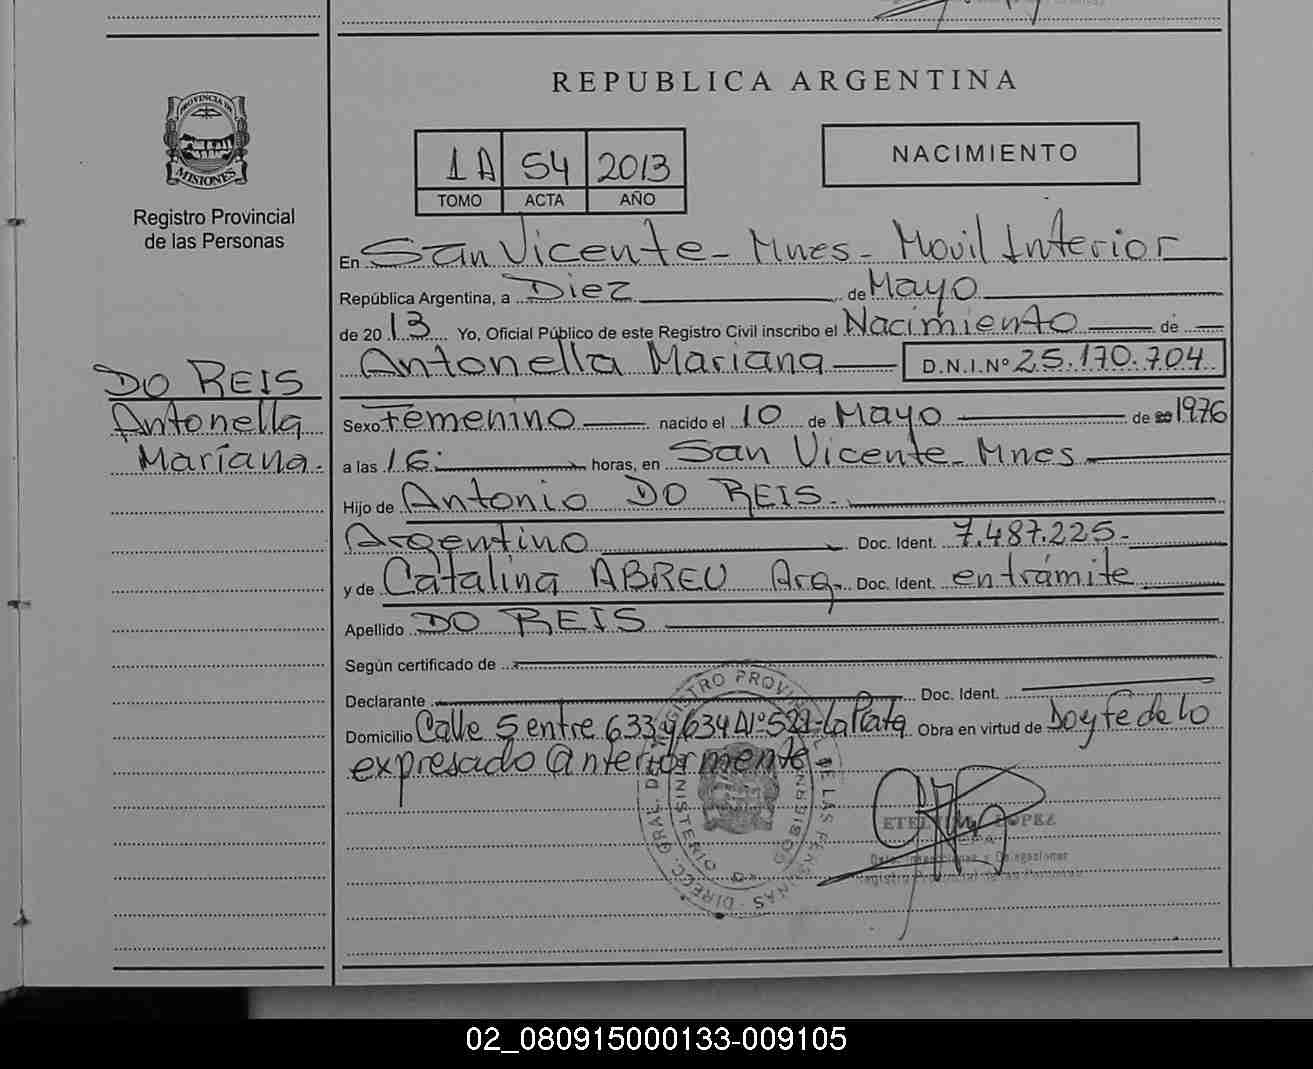 REPUBLICA ARGENTINA
PROVINCIA DE
MISIONES
Registro Provincial
de las Personas
1A 54 2013
TOMO ACTA AÑO
NACIMIENTO
En San Vicente - Mnes - Movil Interior
República Argentina, a Diez de Mayo
de 20 13 Yo, Oficial Público de este Registro Civil inscribo el Nacimiento de
Antonella Mariana D.N.I.Nº 25.170.704
DO REIS
Antonella
Mariana.
Sexo Femenino nacido el 10 de Mayo de 20 1976
a las 16: horas, en San Vicente - Mnes
Hijo de Antonio DO REIS.
Argentino Doc. Ident. 7.487.225-
y de Catalina ABREU Arg. Doc. Ident. en trámite
Apellido DO REIS
Según certificado de
Declarante Doc. Ident.
Domicilio Calle 5 entre 633 y 634 Nº 521-La Plata Obra en virtud de Doy fe de lo
expresado anteriormente
DIRECC. GRAL. DEL REGISTRO PROVINCIAL DE LAS PERSONAS
MINISTERIO
LOPEZ
Registro Provincial de las Personas
02_080915000133-009105